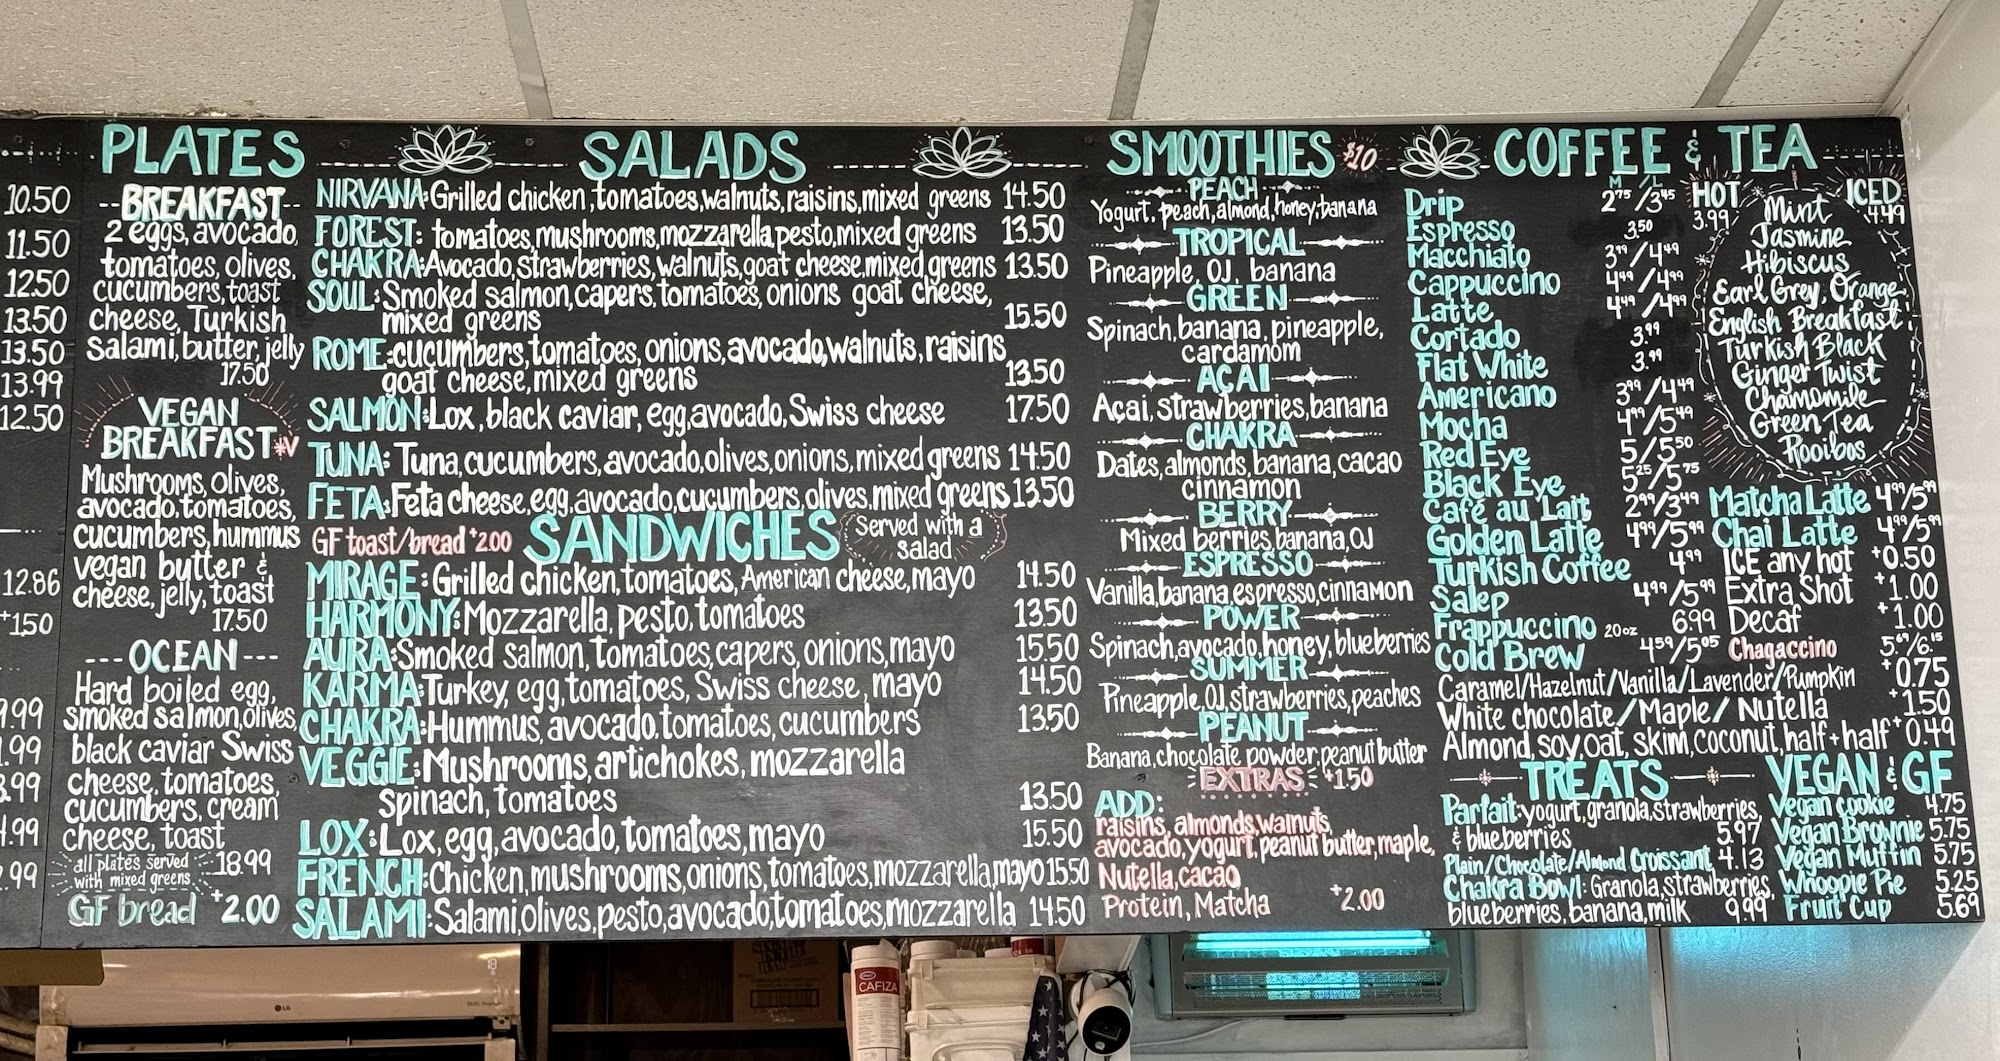 10.50
11.50
12.50
13.50
13.50
13.99
12.50
12.86
+1.50
9.99
.99
3.99
4.99
.99
PLATES
BREAKFAST
2 eggs, avocado,
tomatoes, olives,
cucumbers, toast
cheese, Turkish
Salami, butter, jelly
17.50
VEGAN
BREAKFAST *V
Mushrooms, olives,
avocado, tomatoes,
cucumbers, hummus
vegan butter &
cheese, jelly, toast
17.50
OCEAN
Hard boiled egg,
smoked salmon, olives,
black caviar Swiss
cheese, tomatoes,
cucumbers, cream
cheese, toast
all plates served 18.99
with mixed greens
GF bread +2.00
SALADS
NIRVANA: Grilled chicken, tomatoes, walnuts, raisins, mixed greens 14.50
FOREST: tomatoes, mushrooms, mozzarella, pesto, mixed greens 13.50
CHAKRA: Avocado, strawberries, walnuts, goat cheese, mixed greens 13.50
SOUL: Smoked salmon, capers, tomatoes, onions goat cheese,
mixed greens 15.50
ROME: cucumbers, tomatoes, onions, avocado, walnuts, raisins
goat cheese, mixed greens 13.50
SALMON: Lox, black caviar, egg, avocado, Swiss cheese 17.50
TUNA: Tuna, cucumbers, avocado, olives, onions, mixed greens 14.50
FETA: Feta cheese, egg, avocado, cucumbers, olives, mixed greens 13.50
GF toast/bread +2.00
SANDWICHES
Served with a
salad
MIRAGE: Grilled chicken, tomatoes, American cheese, mayo 14.50
HARMONY: Mozzarella, pesto, tomatoes 13.50
AURA: Smoked salmon, tomatoes, capers, onions, mayo 15.50
KARMA: Turkey, egg, tomatoes, Swiss cheese, mayo 14.50
CHAKRA: Hummus, avocado, tomatoes, cucumbers 13.50
VEGGIE: Mushrooms, artichokes, mozzarella
spinach, tomatoes 13.50
LOX: Lox, egg, avocado, tomatoes, mayo 15.50
FRENCH: Chicken, mushrooms, onions, tomatoes, mozzarella, mayo 15.50
SALAMI: Salami, olives, pesto, avocado, tomatoes, mozzarella 14.50
SMOOTHIES $10
PEACH
Yogurt, peach, almond, honey, banana
TROPICAL
Pineapple, OJ, banana
GREEN
Spinach, banana, pineapple,
cardamom
AÇAI
Açai, strawberries, banana
CHAKRA
Dates, almonds, banana, cacao
cinnamon
BERRY
Mixed berries, banana, OJ
ESPRESSO
Vanilla, banana, espresso, cinnamon
POWER
Spinach, avocado, honey, blueberries
SUMMER
Pineapple, OJ, strawberries, peaches
PEANUT
Banana, chocolate powder, peanut butter
EXTRAS +1.50
ADD:
raisins, almonds, walnuts,
avocado, yogurt, peanut butter, maple,
Nutella, cacao
Protein, Matcha +2.00
COFFEE & TEA
M L
Drip 2.75/3.45
Espresso 3.50
Macchiato 3.99/4.49
Cappuccino 4.49/4.99
Latte 4.49/4.99
Cortado 3.99
Flat White 3.99
Americano 3.99/4.49
Mocha 4.99/5.49
Red Eye 5/5.50
Black Eye 5.25/5.75
Café au Lait 2.99/3.49
Golden Latte 4.99/5.99
Turkish Coffee 4.99
Salep 4.99/5.99
Frappuccino 20oz 6.99
Cold Brew 4.59/5.05
HOT 3.99
ICED 4.49
Mint
Jasmine
Hibiscus
Earl Grey, Orange
English Breakfast
Turkish Black
Ginger Twist
Chamomile
Green Tea
Rooibos
Matcha Latte 4.99/5.99
Chai Latte 4.99/5.99
ICE any hot +0.50
Extra Shot +1.00
Decaf +1.00
Chagaccino 5.69/6.15
Caramel/Hazelnut/Vanilla/Lavender/Pumpkin +0.75
White chocolate/Maple/Nutella +1.50
Almond, soy, oat, skim, coconut, half+half +0.49
TREATS
Parfait: yogurt, granola, strawberries,
& blueberries 5.97
Plain/Chocolate/Almond Croissant 4.13
Chakra Bowl: Granola, strawberries,
blueberries, banana, milk 9.99
VEGAN & GF
Vegan cookie 4.75
Vegan Brownie 5.75
Vegan Muffin 5.75
Whoopie Pie 5.25
Fruit Cup 5.69
LG
CAFIZA